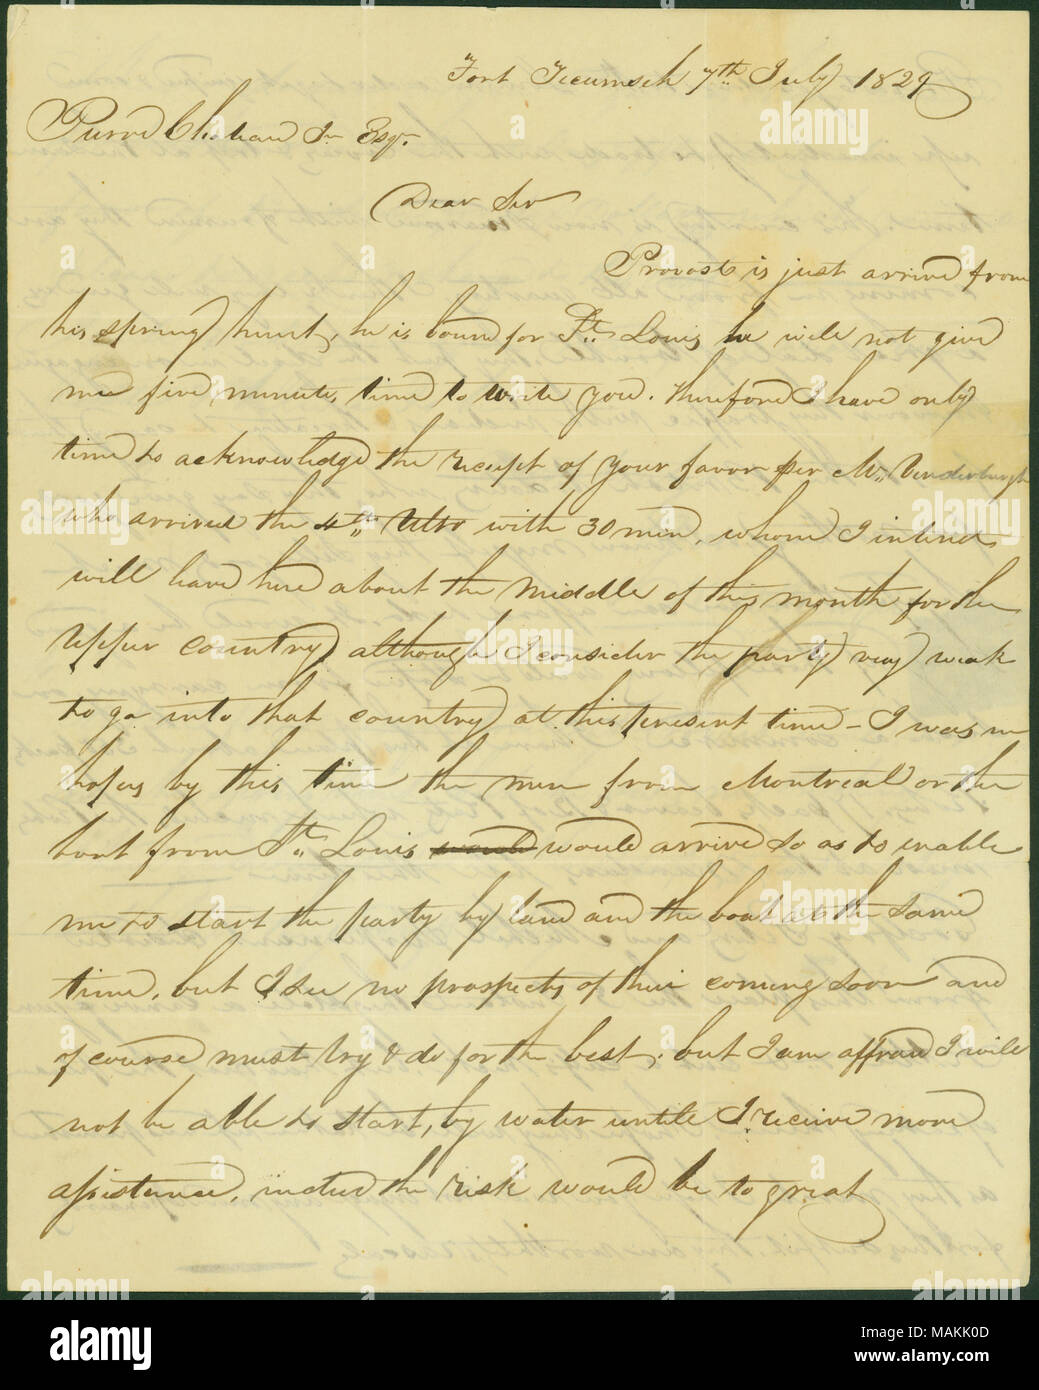 Fort Tecumseh 7th July 1829
Pierre Chouteau Jr Esqr.
Dear Sir
Provost is just arrived from
his spring hunt, he is bound for St. Louis he will not give
me five minutes time to write you. Therefore I have only
time to acknowledge the receipt of your favor per Mr. Vanderburgh
who arrived the 4th Ulto with 30 men, whom I intend
will leave here about the middle of this month for the
Upper country although I consider the party very weak
to go into that country at this present time - I was in
hopes by this time the men from Montreal or the
boat from St. Louis would would arrive so as to enable
me to start the party by land and the boat at the same
time, but I see no prospects of their coming soon and
of course must try & do for the best, but I am affraid I will
not be able to start, by water untill I receive more
assistance, indeed the risk would be to great
alamy
a
Image ID: MAKK0D
www.alamy.com